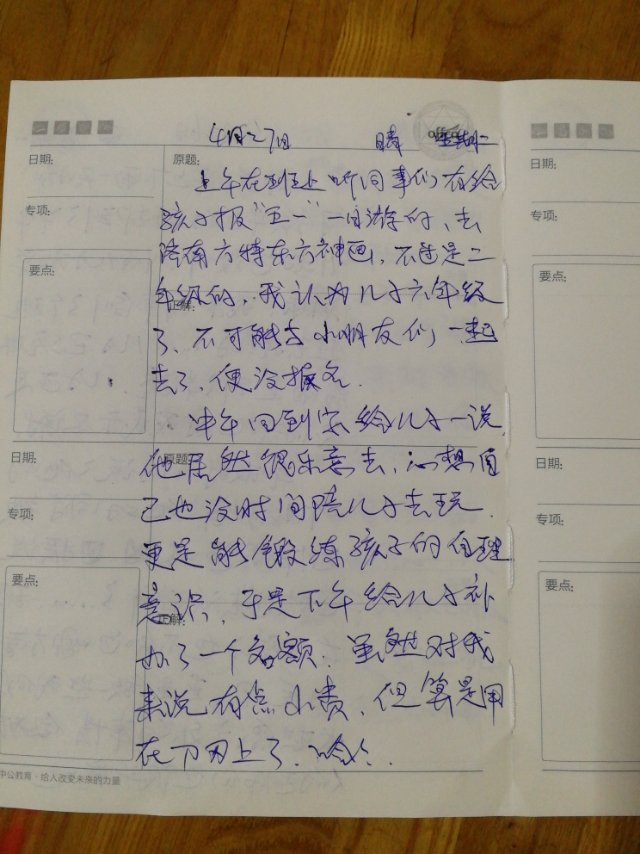 4月27日 晴 星期二
日期:
原题:
上午在班上听同事们有给
专项:
孩子报“五一”一日游的、去
要点:
洛南六特东六神画,不过是二
正解:
年级的,我认为儿子六年级
了、不可能与小朋友们一起
去了,便没报名.
中午回到家给儿子一说,
日期:
原题:
他居然很乐意去,心想自
己也没时间陪儿子去玩.
专项:
更是能锻练孩子的自理
要点:
正解:
意识,于是下午给儿子补
办了一个名额.虽然对我
来说有点小贵,但算是用
在刀刃上了.哈哈.
中公教育·给人改变未来的力量
日期:
专项:
要点:
日期:
专项:
要点: